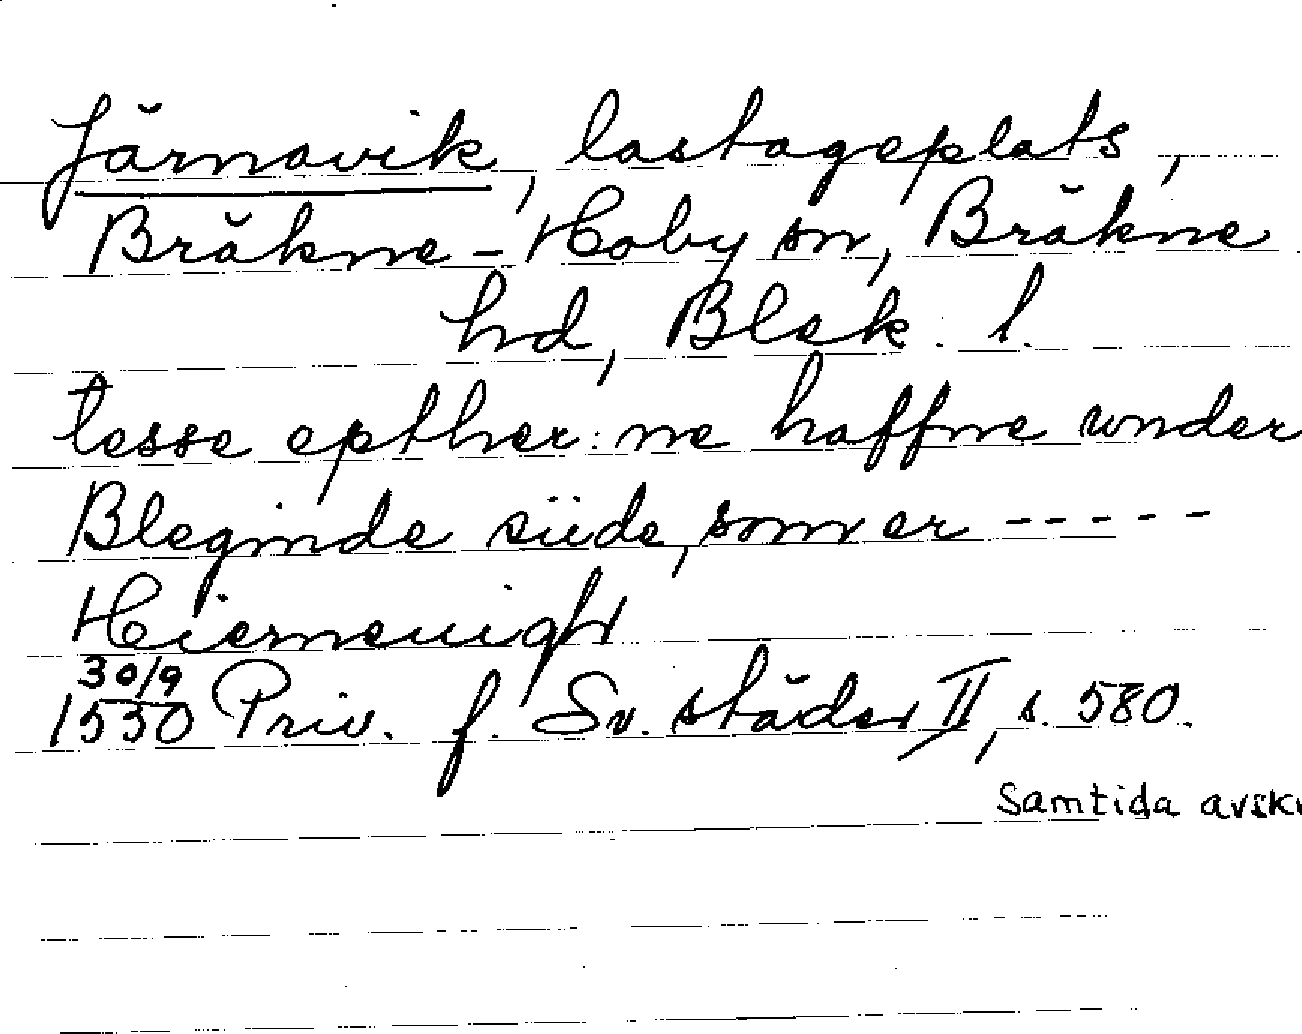 Järnavik, lastageplats,
Bräkne-Hoby sn, Bräkne
hd, Blek. l.
tesse epther:ne haffne wnder
Bleginde siide, som er -----
Hierneuigh
30/9
1530 Priv. f. Sv. städer II, s. 580.
Samtida avskr